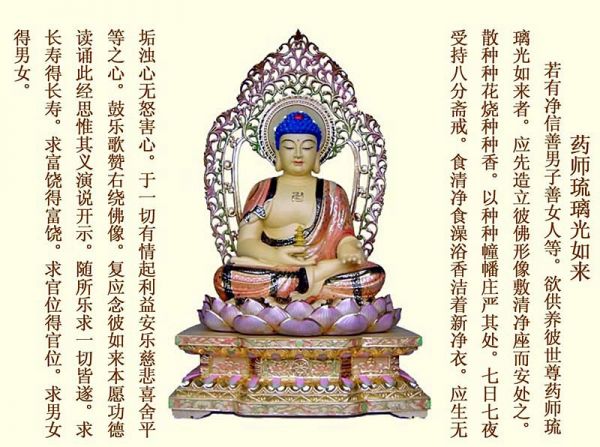 药师琉璃光如来
若有净信善男子善女人等。欲供养彼世尊药师琉
璃光如来者。应先造立彼佛形像敷清净座而安处之。
散种种花烧种种香。以种种幢幡庄严其处。七日七夜
受持八分斋戒。食清净食澡浴香洁着新净衣。应生无
垢浊心无怒害心。于一切有情起利益安乐慈悲喜舍平
等之心。鼓乐歌赞右绕佛像。复应念彼如来本愿功德
读诵此经思惟其义演说开示。随所乐求一切皆遂。求
长寿得长寿。求富饶得富饶。求官位得官位。求男女
得男女。
卍